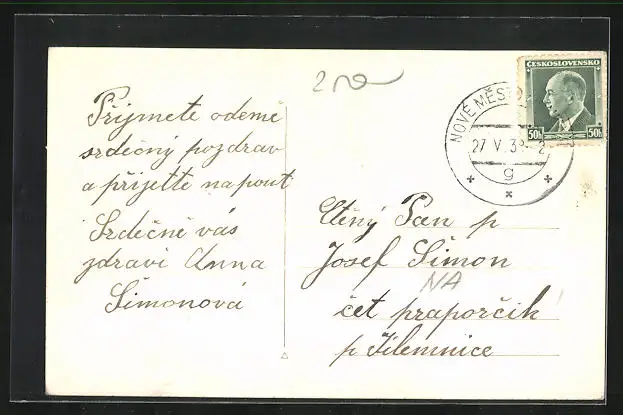 Přijmete odemě
srdečný pozdrav
a přijette napout
Srdečně vás
zdraví Anna
Šimonová
ČESKOSLOVENSKO
50h 50h
NOVÉ MĚST
27 V. 38 - 2
g
Ctěný Pan p
Josef Šimon
NA
čet praporčik
p Jilemnice